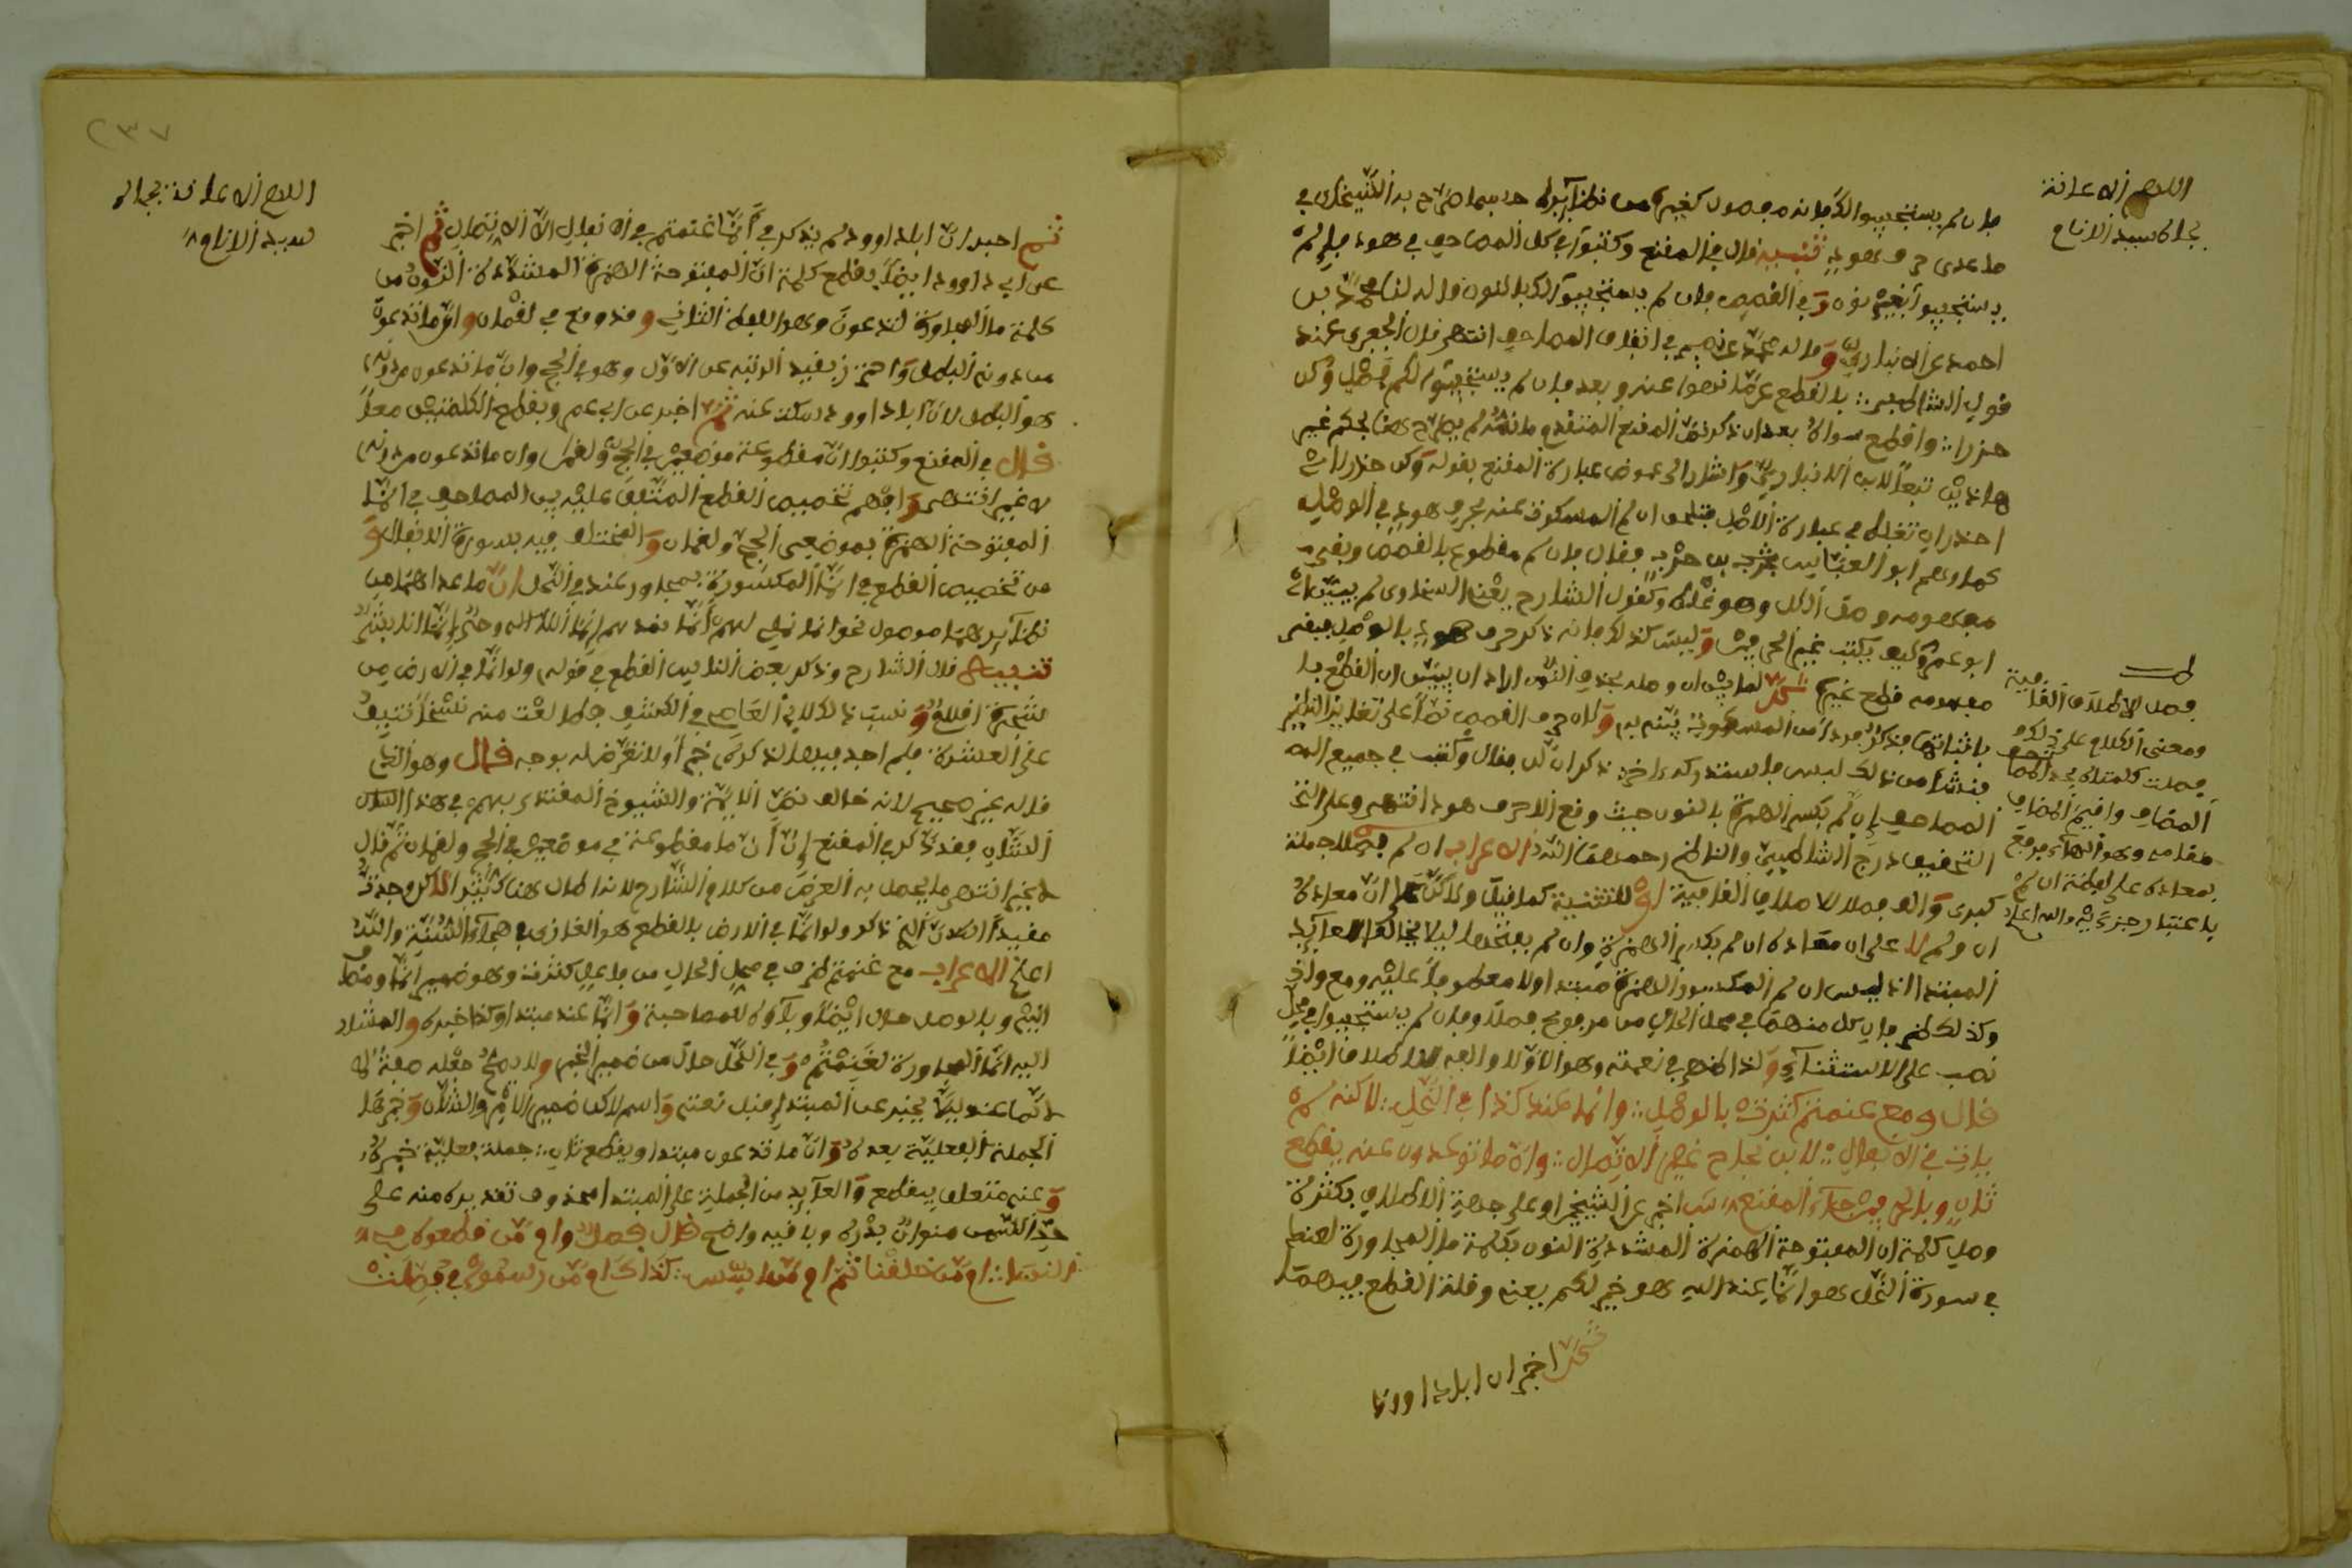 اللهم الاعانة
بجاه سيد الانام
فان لم يستجيبوا لك فانه موصول كغيره من نظائره حسبما صرح به الشيخان في
ما عدى حرف هود تنبيه قال في المقنع وكتبوا في كل المصاحف في هود فإلم
يستجيبوا بغير نون وفي القصص فان لم يستجيبوا لك بالنون قاله لنا محمد بن
احمد عن الانباري وقاله محمد بن عيسى في اتفاق المصاحف انتهى قال الجعبري عند
قول الشاطبي بالقطع عن ما نهوا عنه وبعد فان لم يستجيبوا لكم فصل وكن
حذرا واقطع سواه بعد ان ذكر نص المقنع المتقدم ما نصه لم يصرح هنا بحكم غير
هاذين تبعا لابن الانباري واشار الى غموض عبارة المقنع بقوله وكن حذرا اي
احذر ان تغلط في عبارة الاصل فتلحق ان لم المسكوت عنه بحرف هود في الوصل
كما وهم ابو العباس بن حرب فقال فان لم مقطوع بالقصص وبقي
مفهومه وصل الكل وهو غلط وكقول الشارح يعني السخاوي لم يبين اي
ابو عمرو كيف يكتب غير الحرفين وليس كذلك فانه ذكر حرف هود بالوصل فبقي
مفهومه قطع غيره ثم لما بين ان وصله بحذف النون اراد ان يبين ان القطع با
باثباتها فذكر فردا من المسكوت ينبه به وكان حرف القصص نصا على تغاير النظير
فنشا من ذلك لبس ما استدركه اخيرا ذكر ان لن فقال وكتب في جميع المصا
المصاحف فإن لم بكسر الهمزة بالنون حيث وقع الا حرف هود انتهى وعلى التحقيق
درج الشاطبي والناظم رحمهما الله الاعراب ان لم فصلا جملة
كبرى والف فصلا لاطلاق القافية او للتثنية كما قيل
ان ولم لا على ان معاده ان لم بكسر الهمزة وان لم بفتحها ليلا يخالف العايد
المبتدا اذ ليس ان لم المكسور الهمزة مبتدا ولا معطوفا عليه ومع وان
وكذلك لهم فان كل منهما في محل الحال من مرفوع فصلا وفان لم يستجيبوا في محل
نصب على الاستثناء ولذا ظهر في نعته وهو الاولا والفه للاطلاق ايضا
قال ومع غنمتم كثرت بالوصل وانما عند كذا في النحل لاكنه لم
يات في الانفال لابن نجاح غير الاتصال وان ما توعدون عنه يقطع
ثان وبالحرفين جاء المقنع اخبر عن الشيخين او على جهة الاطلاق بكثرة
وصل كلمة ان المفتوحة الهمزة المشددة النون بكلمة ما المجاورة لغنمتم
في سورة النحل هو انما عند الله هو خير لكم يعني وقلة القطع فيهما
ثم اخبر ان ابا داوود
فصلا لاطلاق القافية
ومعنى الكلام على ذلك
فصلت كلمتاه بحذف
المضاف واقيم المضاف
مقامه وهو الهاء فرفع
بمعاده على لفظة ان لم
باعتبار جزئيه والله اعلم
٢٣٧
اللهم الاعانة بجاه
سيد الانام
ثم اخبر ان ابا داوود لم يذكر في انما غنمتم في الانفال الا الاتصال ثم اخبر
عن ابي داوود ايضا بقطع كلمة ان المفتوحة الهمزة المشددة النون من
كلمة ما المجاورة لتدعون وهو اللفظ الثاني وقد وقع في لقمان وان ما تدعون
من دونه الباطل واحترز بقيد الرتبة عن الاول وهو في الحج وان ما تدعون من دونه
هو الباطل لان ابا داوود سكت عنه ثم اخبر عن ابي عمرو بقطع الكلمتين معا
قال في المقنع وكتبوا ان ما مقطوعة موضعين في الحج ولقمان وان ما تدعون من دونه
لا غير انتهى وافهم تخصيص القطع المتفق عليه بين المصاحف في انما
المفتوحة الهمزة بموضعي الحج ولقمان والمختلف فيه بسورة الانفال و
من تخصيص القطع في انما المكسورة بمجاور عند في النحل ان ما عداهما من
نظائرهما موصول نحو انما نملي لهم انما نعد لهم انما الله اله واحد انما انا بشر
تنبيه قال الشارح وذكر بعض الناس القطع في قوله ولو انما في الارض من
شجرة اقلام ونسب ذلك لابي العاصي في الكشف فطالعت منه نسختين
على العشرة فلم اجد فيها لذكره خبرا ولا تعرض له بوجه قال وهو الذي
قاله غير صحيح لانه خالف نص الائمة والشيوخ المقتدى بهم في هذا الشان
الشان فقد ذكر في المقنع ان ان ما مقطوعة في موضعين في الحج ولقمان ثم قال
لا غير انتهى ما يحصل به الغرض من كلام الشارح لانه اطال هنا كثيرا لاكن وجدت
مقيدا ان الذي ذكر ولو انما في الارض بالقطع هو الغازي في هجاء السنة والله
اعلم الاعراب مع غنمتم ظرف في محل الحال من فاعل كثرت وهو ضمير انما ومتعلق
وبالوصل حال ايضا وباؤه للمصاحبة وانما عند مبتدا وكذا خبره والمشار
اليه انما المجاورة لغنمتم وفي النحل حال من ضمير الخبر ولا يصح جعله صفة
لانما عند ليلا يخبر عن المبتدا قبل نعته واسم لاكن ضمير الامر والشان وخبرها
الجملة الفعلية بعده وان ما تدعون مبتدا ويقطع ثان جملة فعلية خبره
وعنه متعلق بيقطع والعايد من الجملة على المبتدا محذوف تقديره منه على
حد السمن منوان بدرهم وباقيه واضح قال فصل وام من قطعوه في
النساء ام من خلقنا ثم ام من اسس كذاك ام من رسموا في فصلت